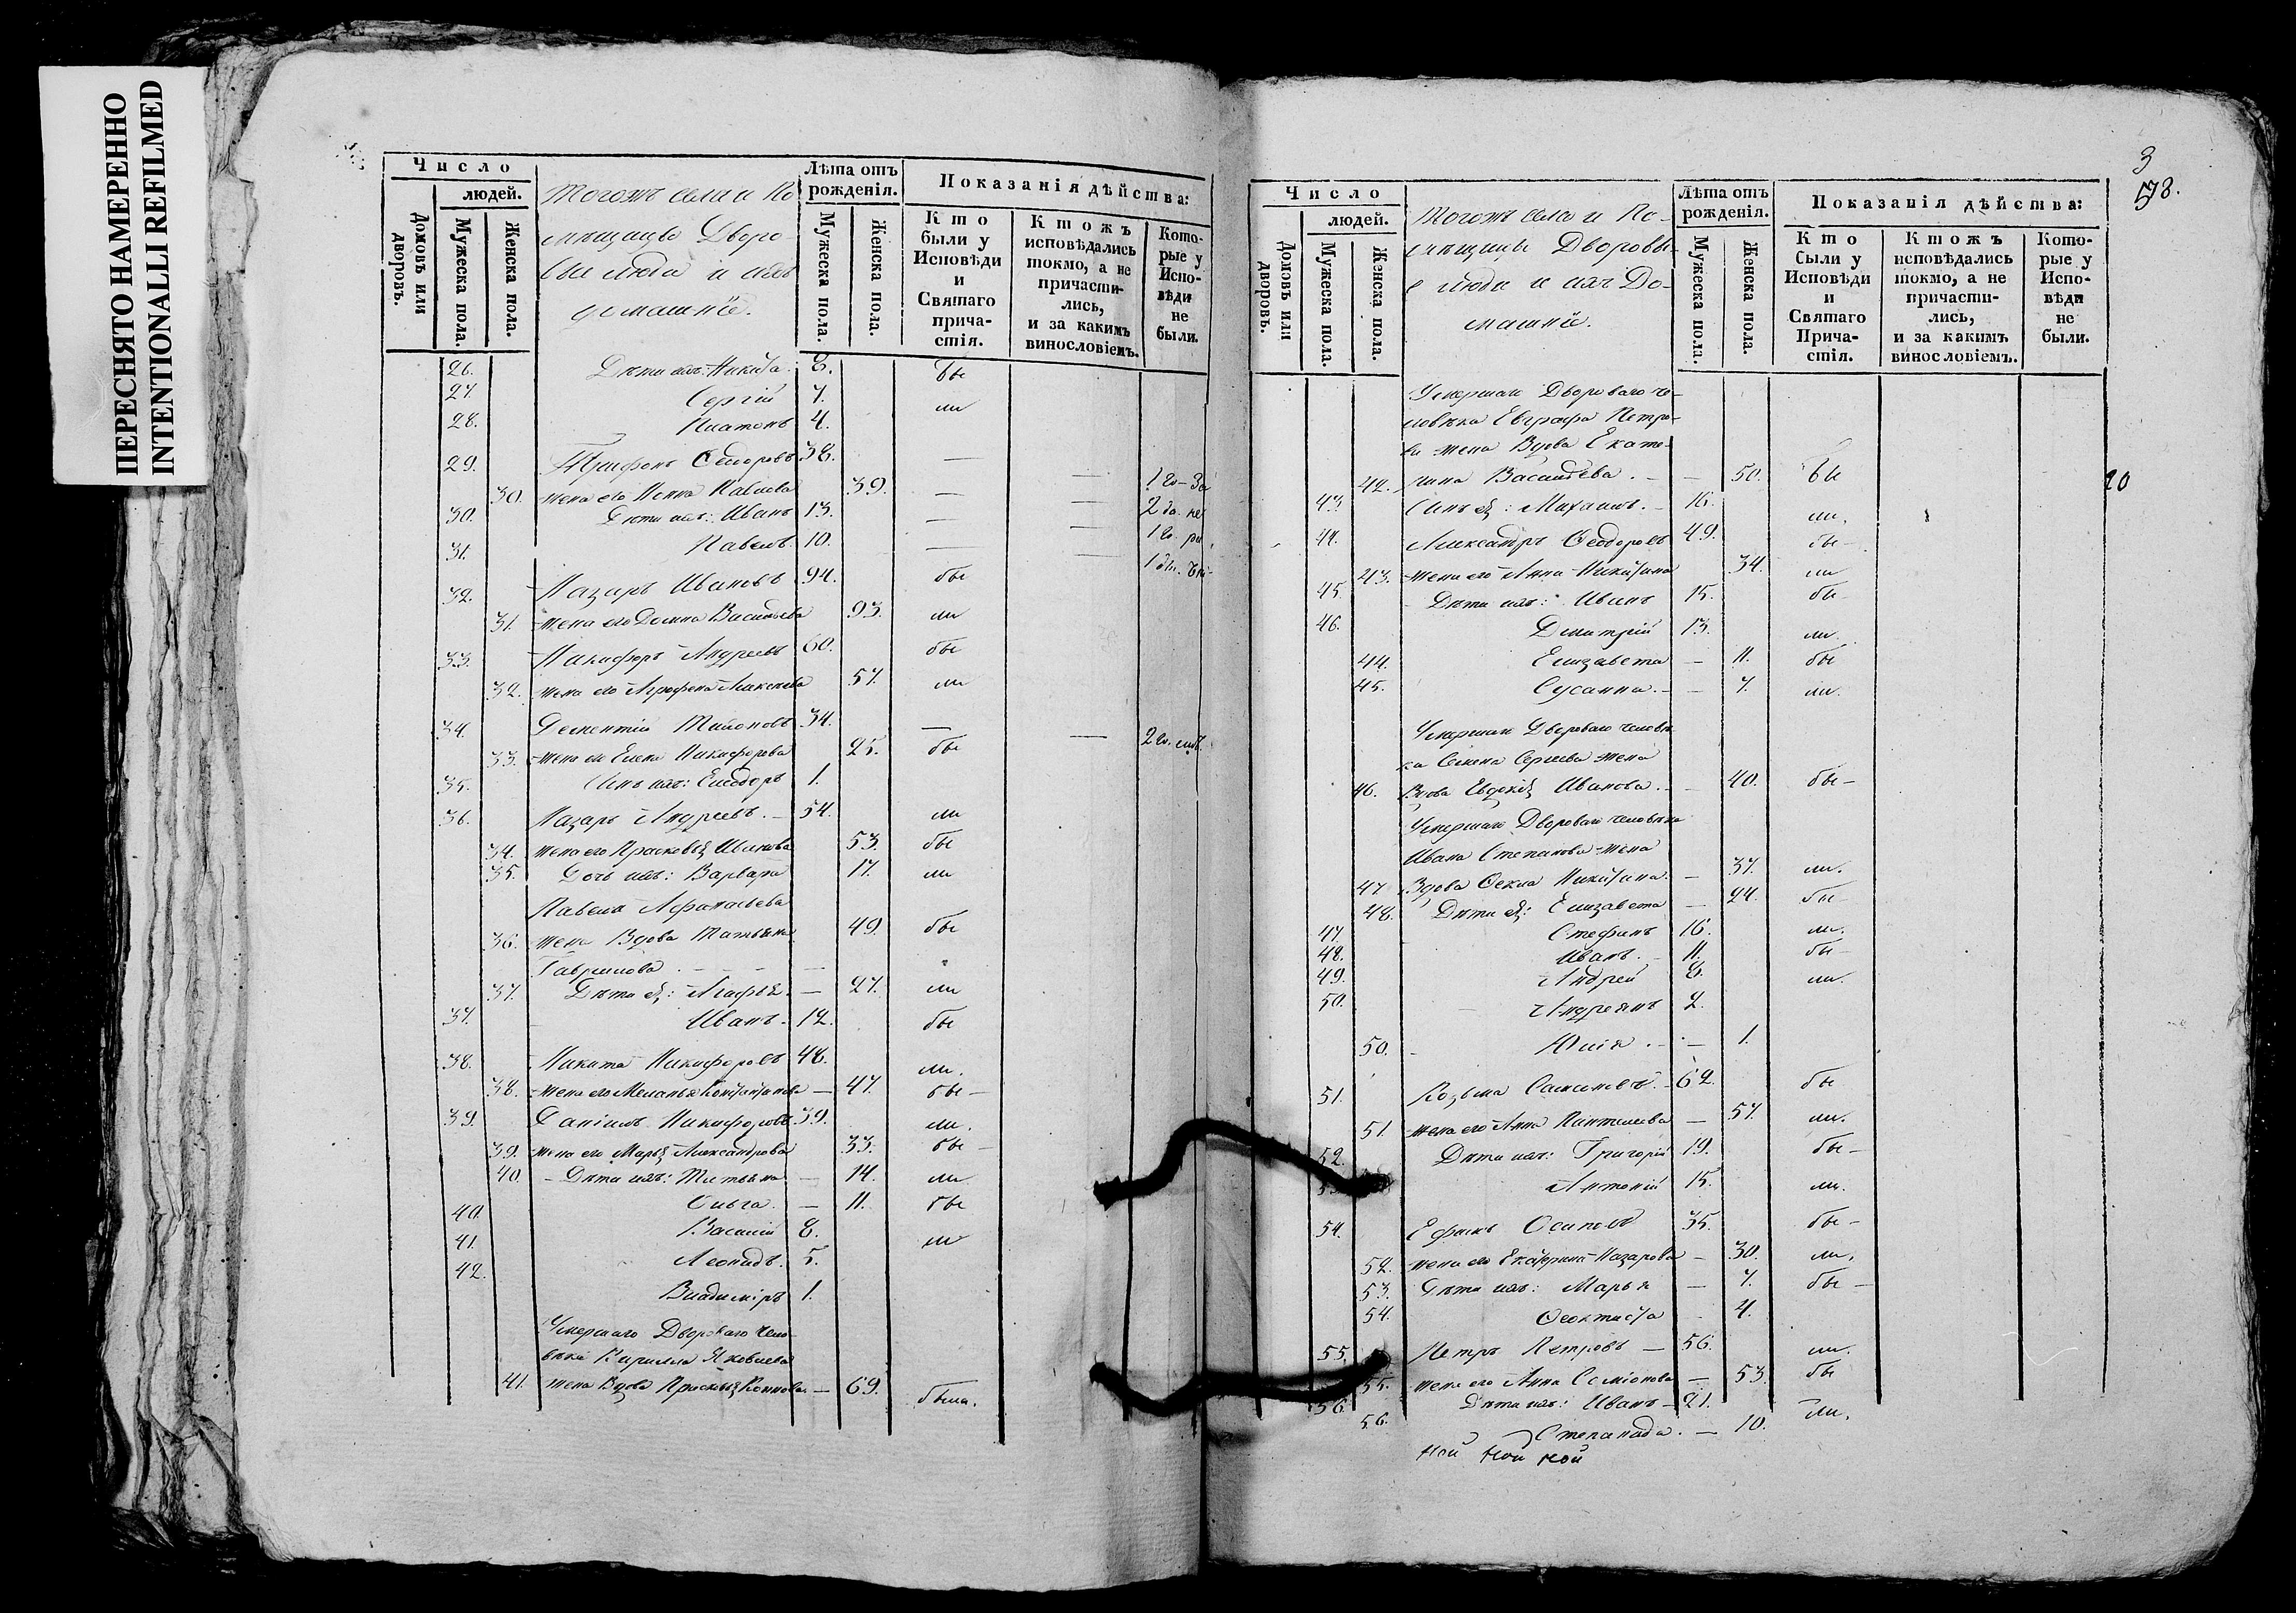 ПЕРЕСНЯТО НАМЕРЕННО
INTENTIONALLI REFILMED
Число
людей.
Домовъ или дворовъ.
Мужеска пола.
Женска пола.
Тогожъ села и По
мѣщицы Дворо
вые люди и ихъ
домашніе.
Лѣта отъ рожденія.
Мужеска пола.
Женска пола.
Показанія дѣйства:
Кто были у Исповѣди и Святаго причастія.
Ктожъ исповѣдались токмо, а не причастились, и за какимъ винословіемъ.
Которые у Исповѣди не были.
26. Дѣти ихъ: Никита. 8. бы
27. Сергій 7. ли
28. Платонъ 4.
29. Трифонъ Ѳедоровъ 38. —
30. жена его Ненила Павлова 39. — —
30. Дѣти ихъ: Иванъ 13. — —
31. Павелъ 10. — —
32. Назаръ Ивановъ 94. бы
31. жена его Домна Васильева 93. ли
33. Никифоръ Андреевъ 60. бы
32. жена его Агрофена Алексеева 57. ли
34. Дементій 34. — —
33. жена его Елена Никифорова 25. бы
35. Сынъ ихъ: 1.
36. Назаръ Андреевъ. — 54. ли
34. жена его Прасковья Иванова 53. бы
35. Дочь ихъ: Варвара 17. ли
Павела Афанасьева
36. жена Вдова Татьяна 49. бы
Гаврилова. — — —
37. Дѣти ея: Агафья. — 27. ли
37. Иванъ. 12. бы
38. Никита Никифоровъ 48. ли.
38. жена его Меланья Константинова — 47. бы —
39. Даніилъ Никифоровъ 39. ли.
39. жена его Марья Александрова 33. бы —
40. — Дѣти ихъ: Татьяна — 14. ли
Ольга. — 11. бы
40. Василій 8. ли
41. Леонидъ. 5.
42. Владиміръ 1.
Умершаго Двороваго чело
вѣка Кирилла Яковлева
41. жена Вдова Прасковья — 69. была.
3
578.
Число
людей.
Домовъ или дворовъ.
Мужеска пола.
Женска пола.
Тогожъ села и По-
мѣщицы Дворовы-
е люди и ихъ До-
машніе.
Лѣта отъ рожденія.
Мужеска пола.
Женска пола.
Показанія дѣйства:
Кто были у Исповѣди и Святаго Причастія.
Ктожъ исповѣдались токмо, а не причастились, и за какимъ винословіемъ.
Которые у Исповѣди не были.
Умершаго Двороваго че-
ловѣка Евграфа Петро-
ва жена Вдова Екате-
42. рина Васильева. — — 50. бы
20
43. Сынъ ея: Михаилъ. — 16. ли.
44. Александръ Ѳеодоровъ 49. бы —
43. жена его Анна Никитина 34. ли
45. Дѣти ихъ: Иванъ 15. бы —
46. Дмитрій 13. ли.
44. Елизавета — 11. бы
45. Сусанна. — — 7. ли.
Умершаго Двороваго человѣ
ка Семена Сергѣева жена
46. Вдова Евдокія Иванова. — 40. бы —
Умершаго Двороваго человѣка
Ивана Степанова жена
47. Вдова Ѳекла Никитина. — 37. ли.
48. Дѣти ея: Елизавета — 24. бы —
47. Стефанъ 16. ли.
48. Иванъ. — 11. бы —
49. Андрей 8. ли.
50. Андреянъ 2.
50. Юлія. — 1.
51. Козьма 62. бы
51. жена его Анна Пантелеева — 57. ли.
52. Дѣти ихъ: Григорій 19. бы —
53. Антоній 15. ли.
54. Ефимъ Осиповъ 35. бы —
52. жена его Екатерина Назарова — 30. ли.
53. Дѣти ихъ: Марья — 7. бы —
54. Ѳеоктиста 4.
55. Петръ Петровъ — 56. ли.
55. жена его Анна Семіонова — 53. бы
56. Дѣти ихъ: Иванъ — 21. ли.
56. Степанида. — 10.